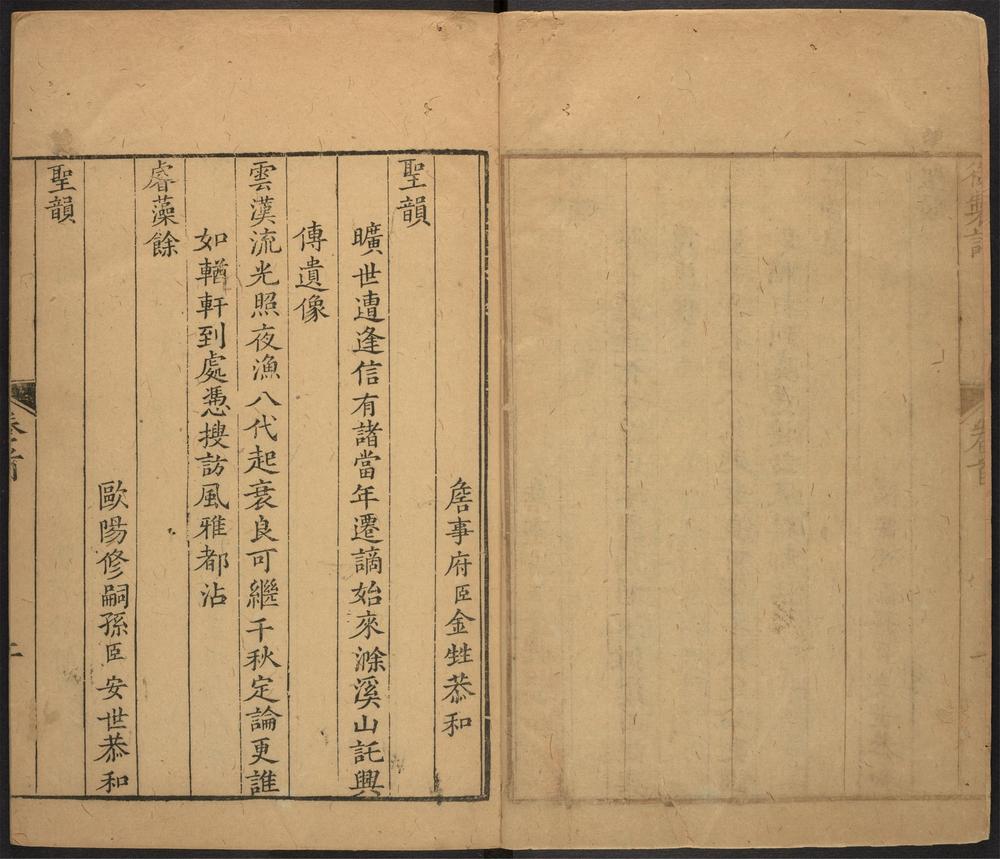 詹事府臣金甡恭和
聖韻
曠世遭逢信有諸當年遷謫始來滁溪山託興
傳遺像
雲漢流光照夜漁八代起衰良可繼千秋定論更誰
如輶軒到處憑搜訪風雅都沾
睿藻餘
歐陽修嗣孫臣安世恭和
聖韻